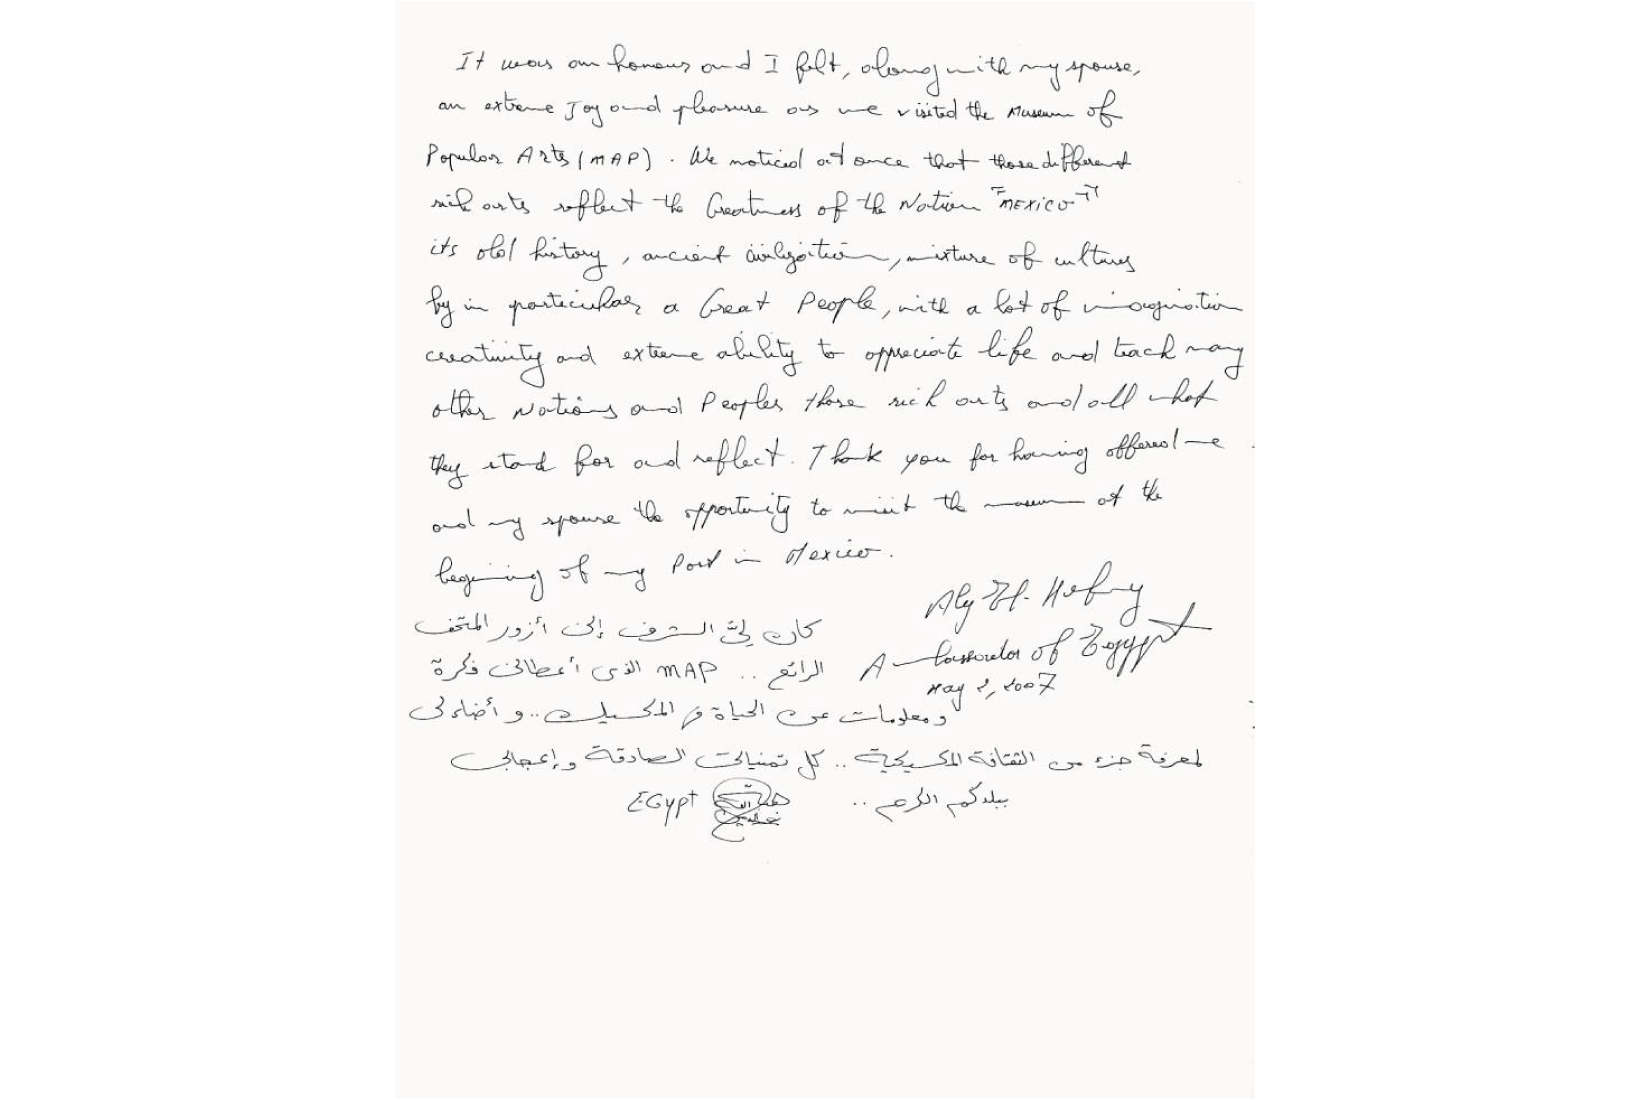 It was an honour and I felt, along with my spouse,
an extreme Joy and pleasure as we visited the Museum of
Popular Arts (MAP). We noticed at once that those different
rich arts reflect the Greatness of the Nation "MEXICO"
its old history, ancient civilization, mixture of cultures
by in particular a Great People, with a lot of imagination
creativity and extreme ability to appreciate life and teach many
other Nations and Peoples those rich arts and all what
they stand for and reflect. Thank you for having offered me
and my spouse the opportunity to visit the museum at the
begining of my Post in Mexico.
Aly H. Hefny
Ambassador of Egypt
May 2, 2007
كان لىّ الشرف إنى أزور المتحف
الرائع .. MAP الذى أعطانى فكرة
ومعلومات عن الحياة فى المكسيك .. و أضاء لى
لمعرفة جزء من الثقافة المكسيكية .. كل تمنياتى الصادقة وإعجابى
ببلدكم الكريم ..
EGypt